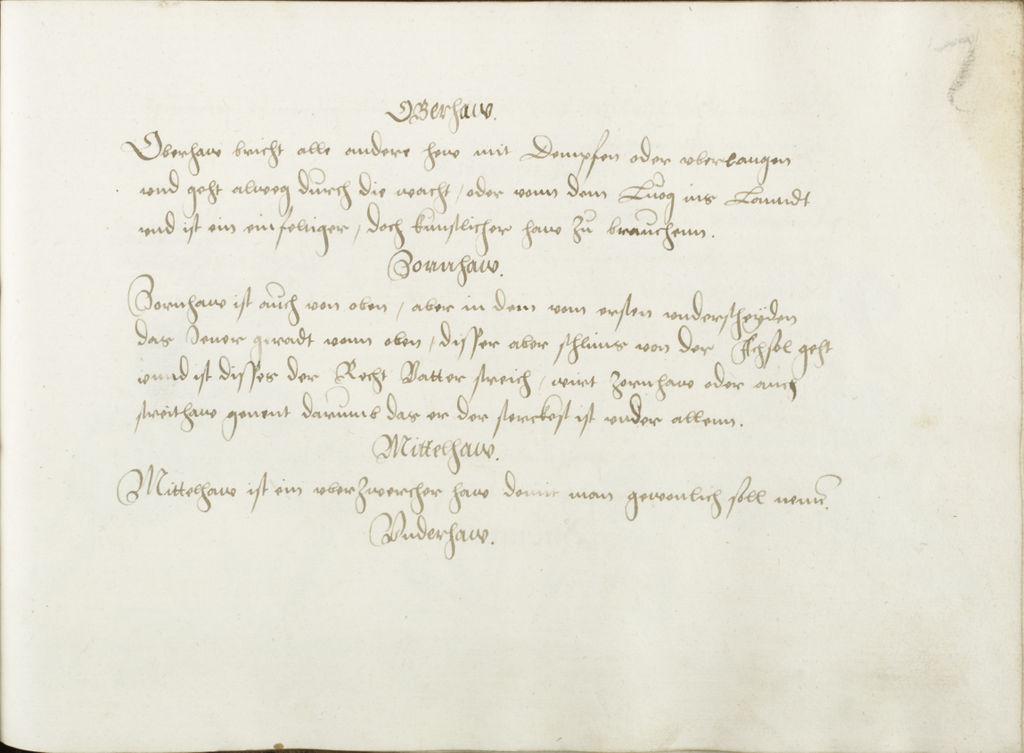 7
Oberhaw.
Oberhaw bricht alle andere hew mit Dempfen oder vberlangen
vnd geht alweg durch die wacht, oder vonn dem Lueg ins Lanndt
vnd ist ein einfeltiger, doch künstlicher haw zu brauchenn.
Zornhaw.
Zornhaw ist auch von oben, aber in dem vom ersten vnderscheyden
das Jener geradt vonn oben, disser aber schlims von der Achsel geht
vnnd ist disses der Recht Vatter streich, wirt Zornhaw oder auch
streithaw genent darumb das er der sterckest ist vnder allenn.
Mittelhaw.
Mittelhaw ist ein vberzwercher haw damit man gewonlich soll nemen.
Vnderhaw.